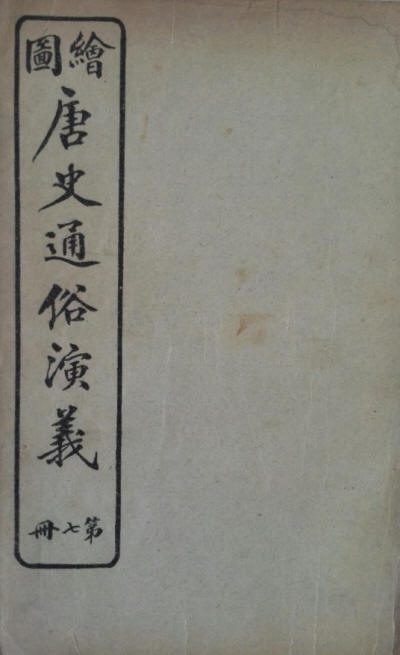 繪圖
唐史通俗演義
第七冊